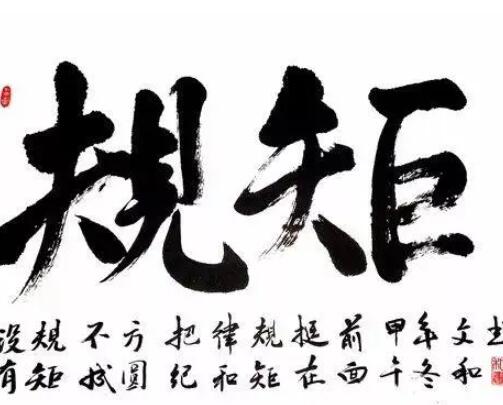 規矩
没有
規矩
不成
方圓
把紀
律和
規矩
挺在
前面
甲午
年冬
文和